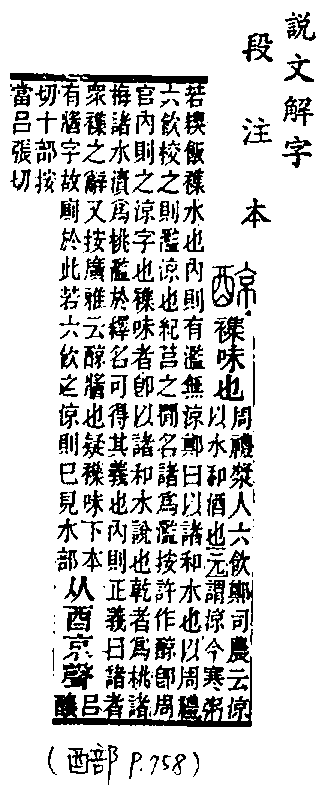 說文解字
段注本
䣼 襍味也 周禮漿人六飲鄭司農云涼
以水和酒也元謂涼今寒粥
若糗飯襍水也內則有濫無涼鄭曰以諸和水也以周禮
六飲校之則濫涼也紀莒之閒名諸爲濫按許作䣼卽周
官內則之涼字也襍味者卽以諸和水說也乾者爲桃諸
梅諸水漬爲桃濫於釋名可得其義也內則正義曰諸者
眾襍之解又按廣雅云䣼醬也疑襍味下本
有醬字故廁於此若六飲之涼則巳見水部
从酉京聲 呂
釀
切十部按
當呂張切
(酉部 P.758)